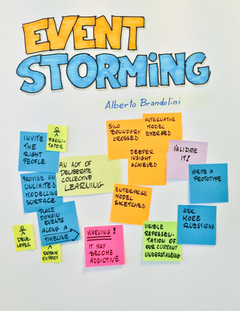 EVENT
STORMING
Alberto Brandolini
INVITE
THE
RIGHT
PEOPLE
FACILI-
TATOR
PROVIDE AN
UNLIMITED
MODELLING
SURFACE
PLACE
DOMAIN
EVENTS
ALONG A
TIMELINE
DEVE-
LOPER
DOMAIN
EXPERT
AN ACT OF
DELIBERATE
COLLECTIVE
LEARNING
WARNING!
IT MAY
BECOME
ADDICTIVE
SILO
BOUNDARY
CROSSED
ALTERNATIVE
MODEL
EMERGED
DEEPER
INSIGHT
ACHIEVED
ENTERPRISE
MODEL
SKETCHED
VALIDATE
IT!
WRITE A
PROTOTYPE
ASK
MORE
QUESTIONS
VISIBLE
REPRESEN-
TATION OF
OUR CURRENT
UNDERSTANDING